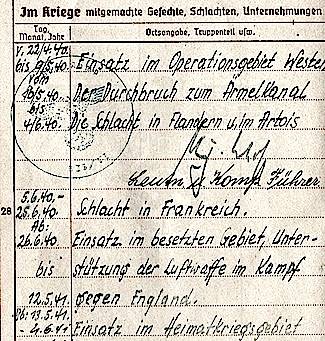 Im Kriege mitgemachte Gefechte, Schlachten, Unternehmungen
Tag, Monat, Jahr
Ortsangabe, Truppenteil usw.
v. 22/4.40. bis 9/5.40. Einsatz im Operationsgebiet Westen
Vom 10/5.40. Der Durchbruch zum Ärmelkanal
bis
4/6.40. Die Schlacht in Flandern u. im Artois
Leutn. u. Komp. Führer
5.6.40.-
28 25.6.40. Schlacht in Frankreich.
Ab:
26.6.40. Einsatz im besetzten Gebiet, Unter-
bis stützung der Luftwaffe im Kampf
12.5.41. gegen England.
Ab: 13.5.41.
- 4.6.41 Einsatz im Heimatkriegsgebiet